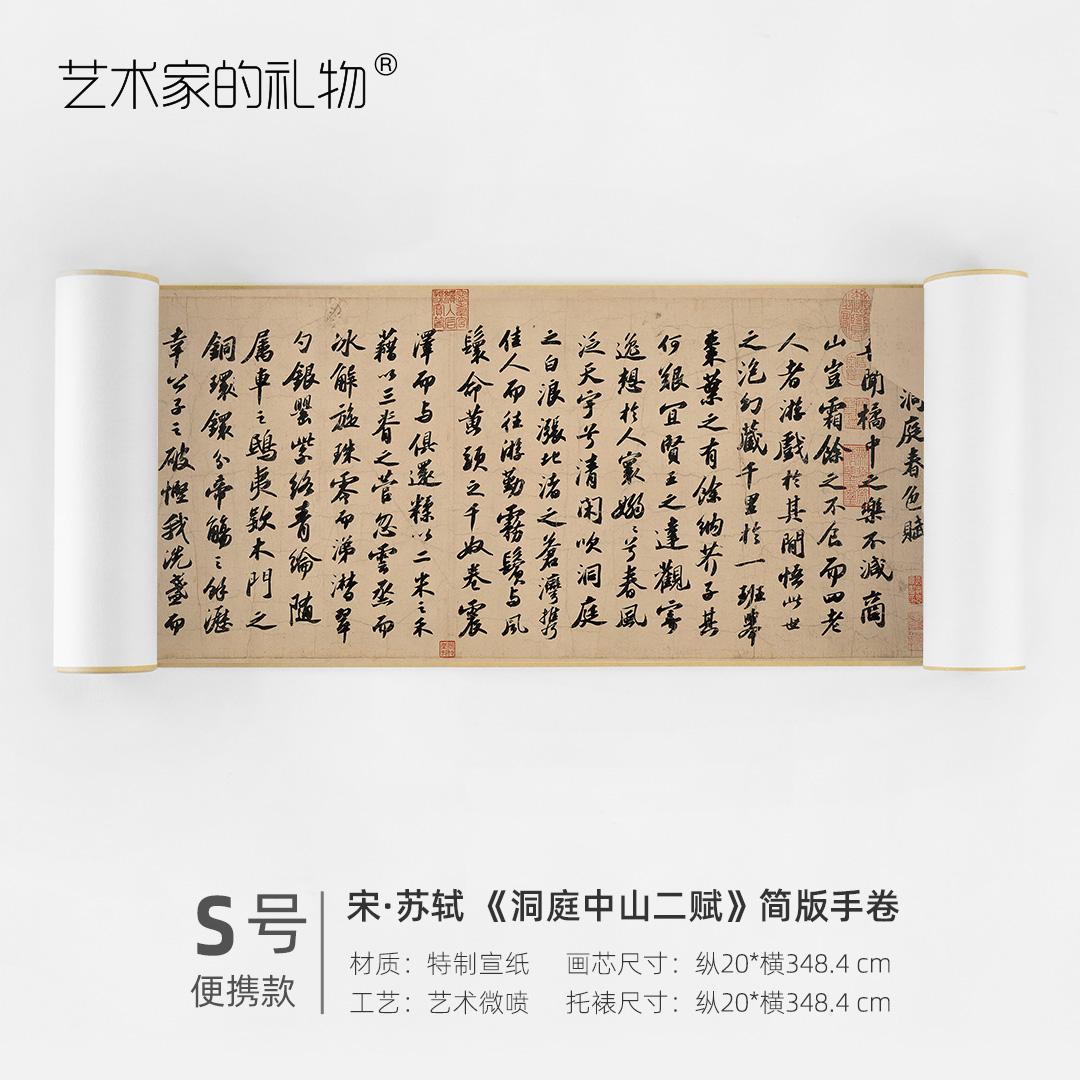 艺术家的礼物®
洞庭春色賦
聞橘中之樂不減商
山豈霜餘之不食而四老
人者游戲於其間悟此世
之泡幻藏千里於一班舉
棗葉之有餘納芥子其
何艱宜賢王之達觀寄
逸想於人寰嫋〻兮春風
泛天宇兮清閑吹洞庭
之白浪漲北渚之蒼灣攜
佳人而往游勤霧鬢與風
鬟命黃頭之千奴卷震
澤而與俱還糅以二米之禾
藉以三脊之菅忽雲烝而
冰解旋珠零而涕潸翠
勺銀罌紫絡青綸隨
屬車之鴟夷款木門之
銅環鐶分帝觴之餘瀝
幸公子之破慳我洗盞而
S号
便携款
宋·苏轼《洞庭中山二赋》简版手卷
材质：特制宣纸 画芯尺寸：纵20*横348.4 cm
工艺：艺术微喷 托裱尺寸：纵20*横348.4 cm